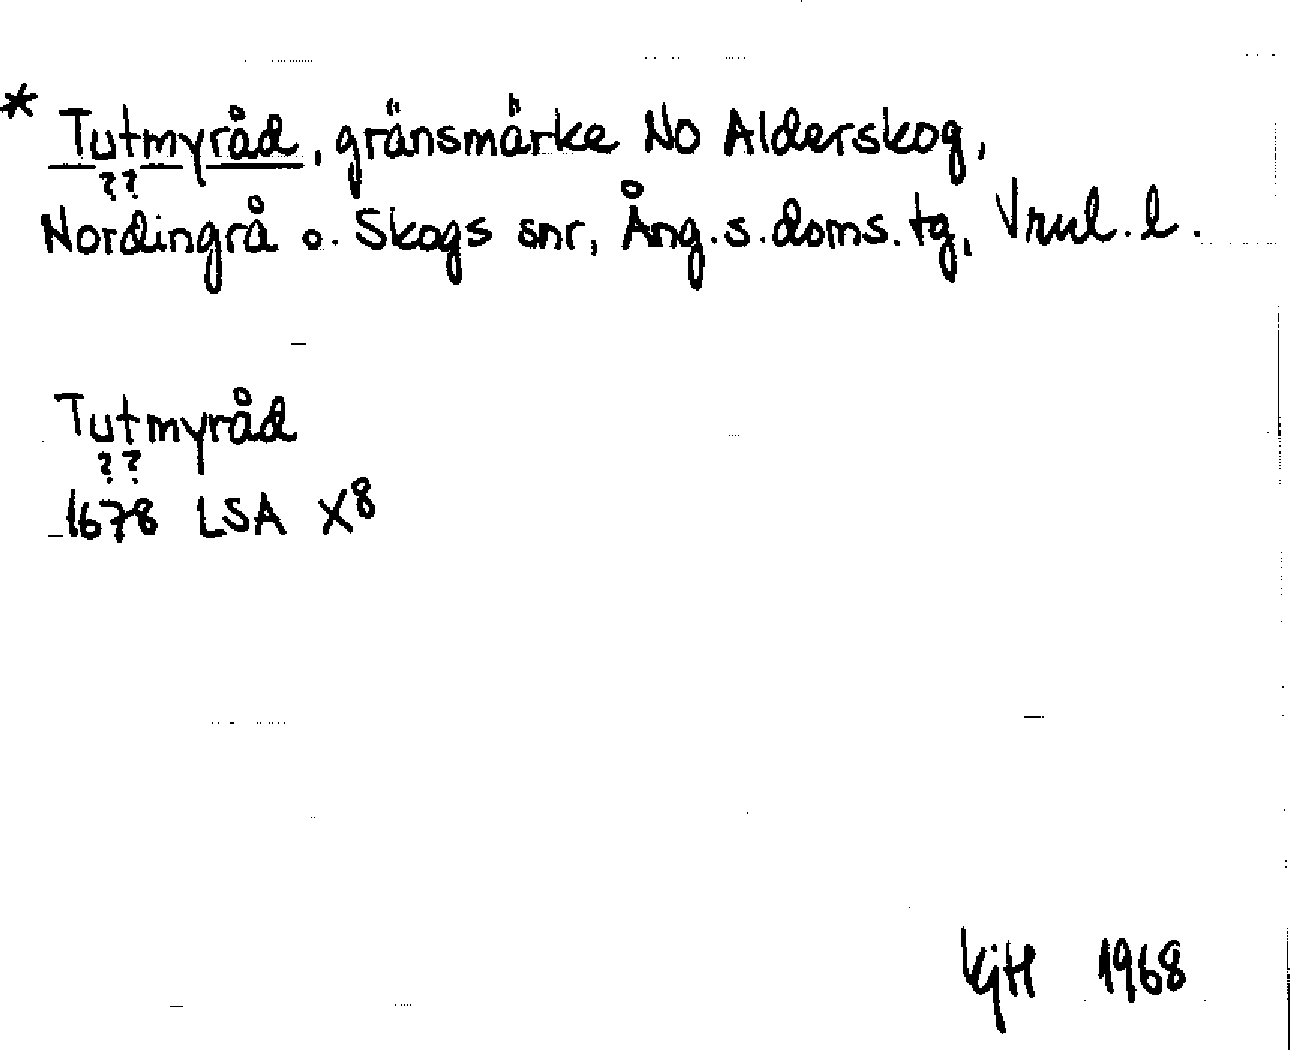 * Tutmyråd, gränsmärke No Alderskog,
? ?
Nordingrå o. Skogs snr, Ång.s.doms.tg, Vnul.l.
Tutmyråd
? ?
1678 LSA X8
KjH 1968